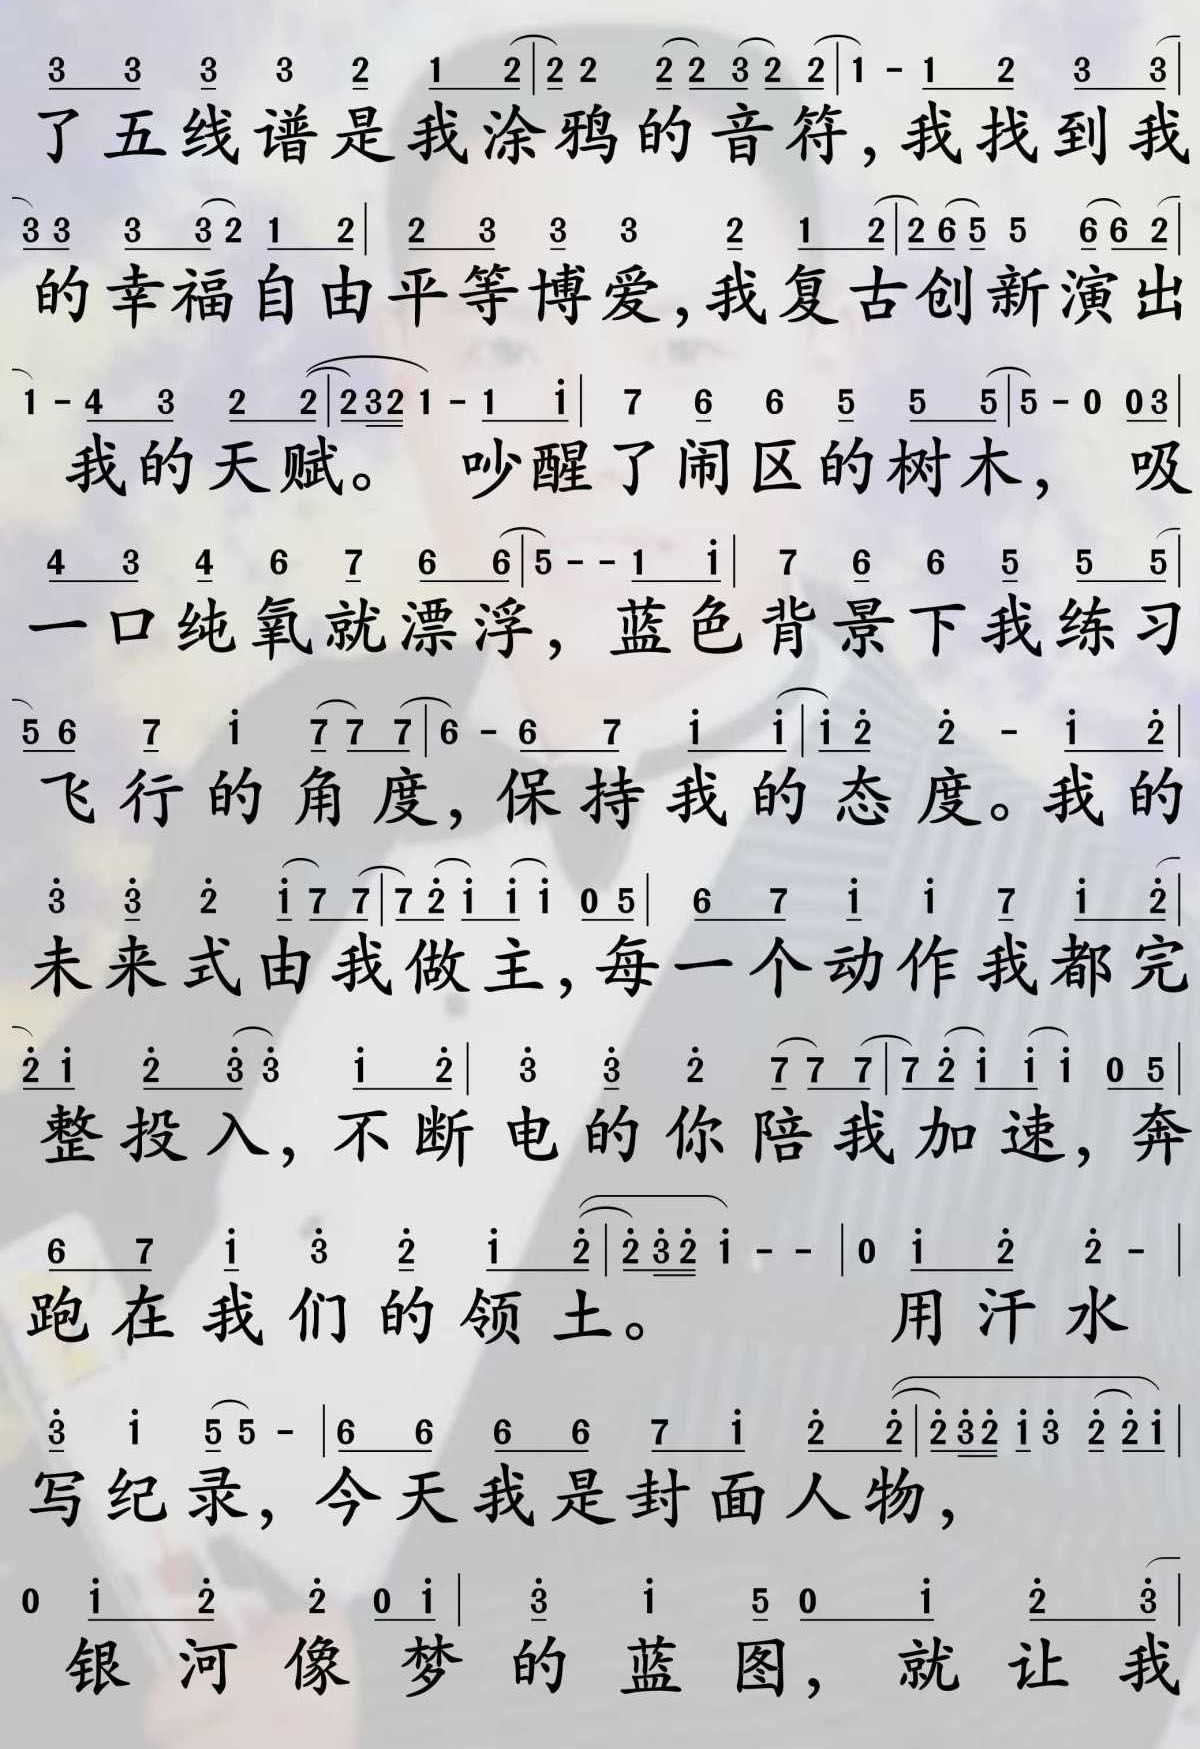 3 3 3 3 2 1 2|2 2 2 2 3 2 2|1 - 1 2 3 3|
了五线谱是我涂鸦的音符,我找到我
3 3 3 3 2 1 2|2 3 3 3 2 1 2|2 6 5 5 6 6 2|
的幸福自由平等博爱,我复古创新演出
1 - 4 3 2 2|2 3 2 1 - 1 i|7 6 6 5 5 5|5 - 0 0 3|
我的天赋。 吵醒了闹区的树木, 吸
4 3 4 6 7 6 6|5 - - 1 i|7 6 6 5 5 5|
一口纯氧就漂浮, 蓝色背景下我练习
5 6 7 i 7 7 7|6 - 6 7 i i|i 2̇ 2̇ - i 2̇|
飞行的角度,保持我的态度。我的
3̇ 3̇ 2̇ i 7 7|7 2̇ i i i 0 5|6 7 i i 7 i 2̇|
未来式由我做主,每一个动作我都完
2̇ i 2̇ 3̇ 3̇ i 2̇|3̇ 3̇ 2̇ 7 7 7|7 2̇ i i i 0 5|
整投入,不断电的你陪我加速,奔
6 7 i 3̇ 2̇ i 2̇|2̇ 3̇ 2̇ i - -|0 i 2̇ 2̇ -|
跑在我们的领土。 用汗水
3̇ i 5 5 -|6 6 6 6 7 i 2̇ 2̇|2̇ 3̇ 2̇ i 3̇ 2̇ 2̇ i|
写纪录,今天我是封面人物,
0 i 2̇ 2̇ 0 i|3̇ i 5 0 i 2̇ 3̇|
银河像梦的蓝图,就让我